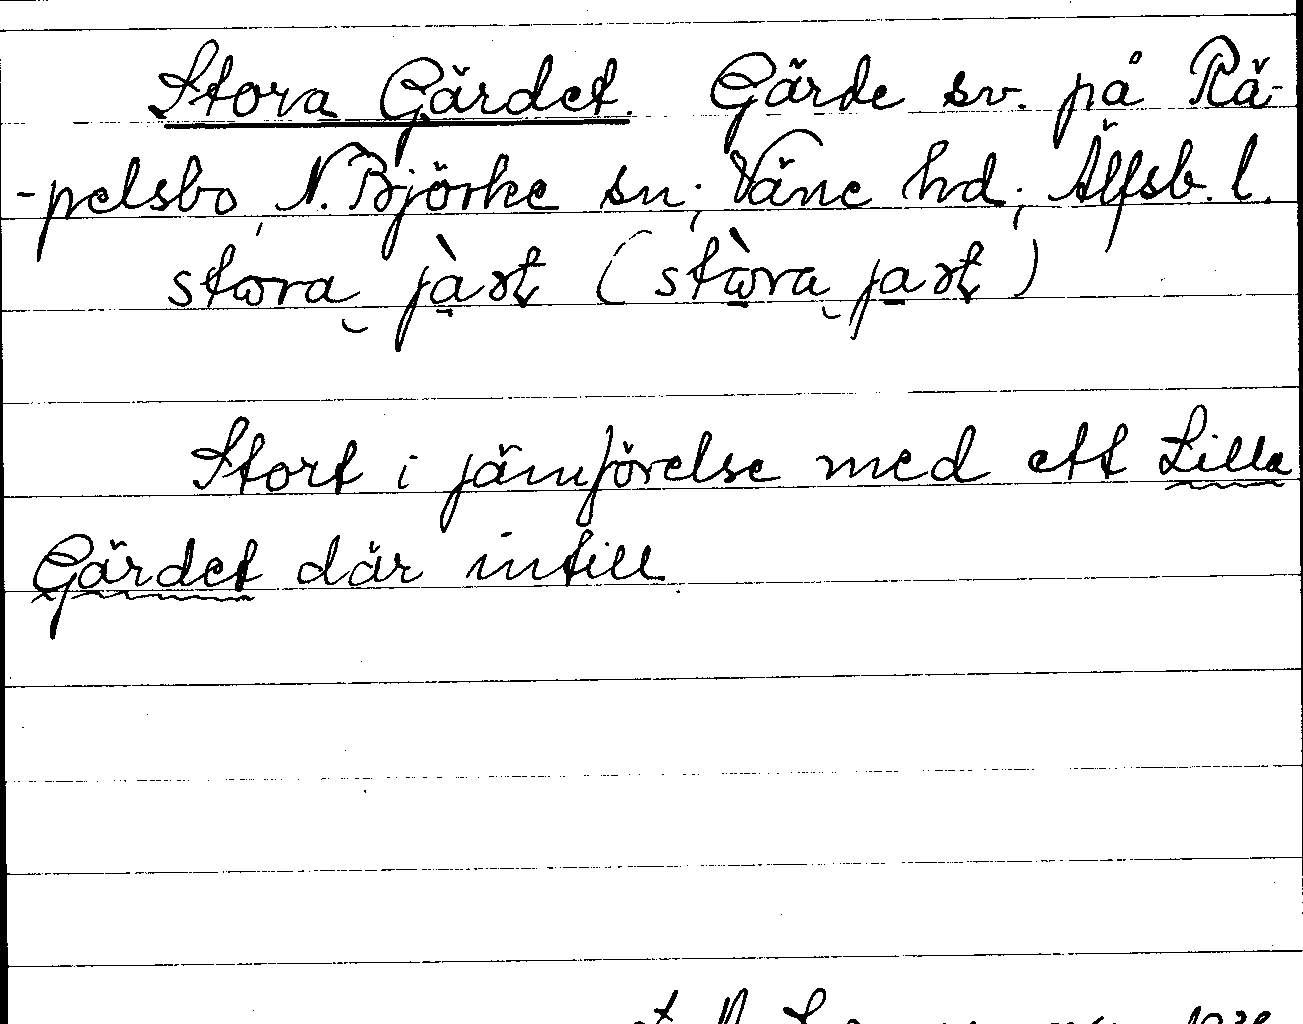 Stora Gärdet. Gärde sv. på Rä-
-pelsbo, N. Björke sn; Väne hd; Älfsb. l.
stωra jàrt (stὼra jart)
Stort i jämförelse med ett Lilla
Gärdet där intill.